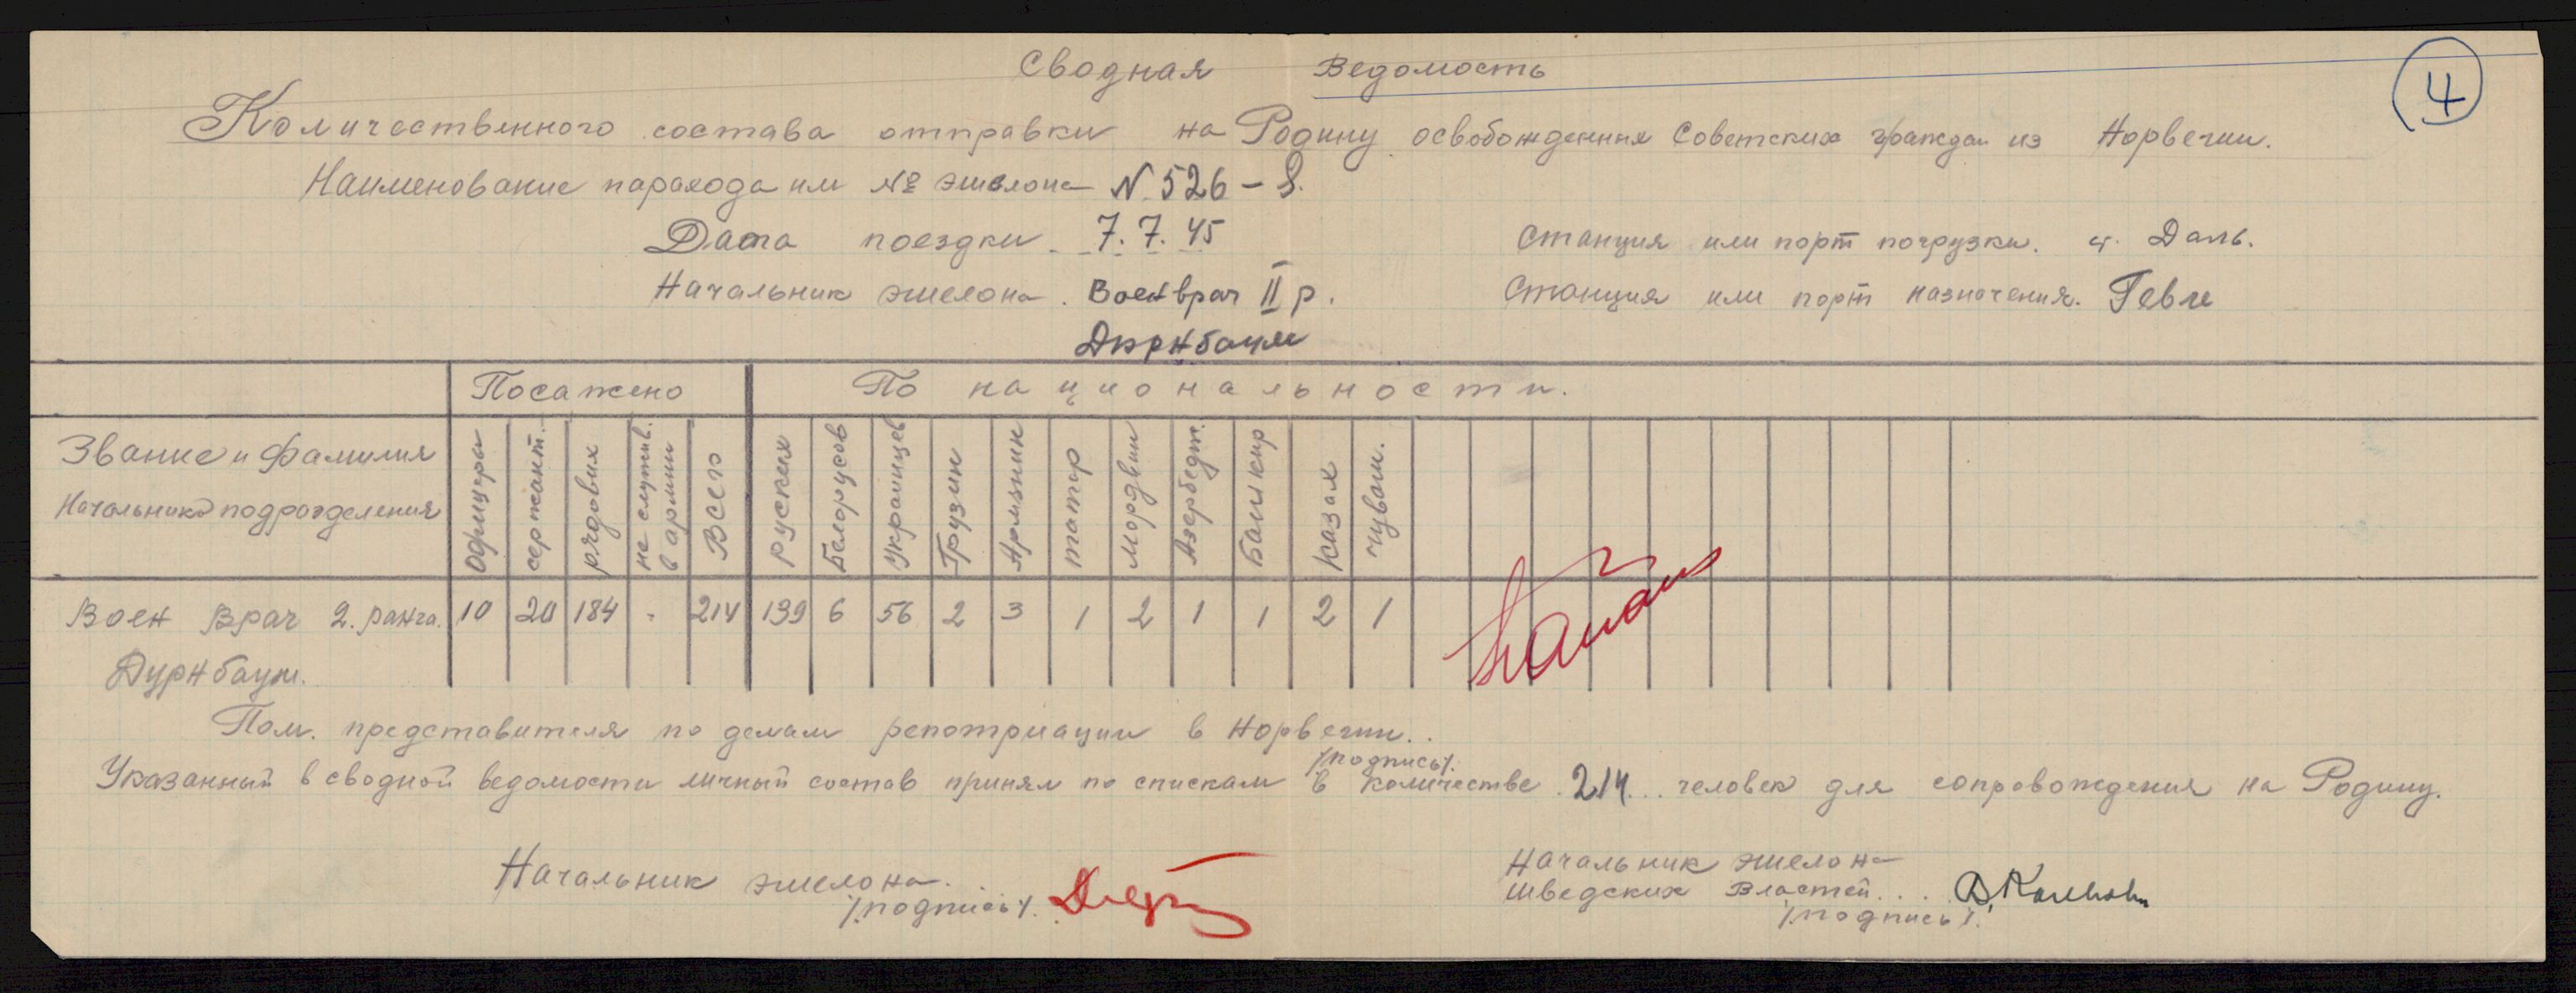 4
Сводная Ведомость
Количественного состава отправки на Родину освобождения Советских граждан из Норвегии.
Наименование парохода или № эшелона N 526 – S.
Дата поездки 7.7.45 Станция или порт погрузки. ст. Даль.
Начальник эшелона. Военврач II р. Станция или порт назначения. Гевле
Дюрнбаум
Посажено По национальности.
Звание и Фамилия
Начальника подразделения
Офицеры
сержант.
рядовых
не служив. в армии
Всего
русских
Белорусов
Украинцев
Грузин
Армянин
татар
мордвин
Азербедж.
Башкир
Казах
чуваш.
Воен Врач 2. ранга. 10 20 184 - 214 139 6 56 2 3 1 2 1 1 2 1
Дурнбаум.
Пом. представителя по делам репотриации в Норвегии..
/подпись/.
Указанный в сводной ведомости личный состав принял по спискам в количестве 214... человек для сопровождения на Родину.
Начальник эшелона.
/подпись/.
Начальник эшелона
Шведских Властей...
/подпись/.